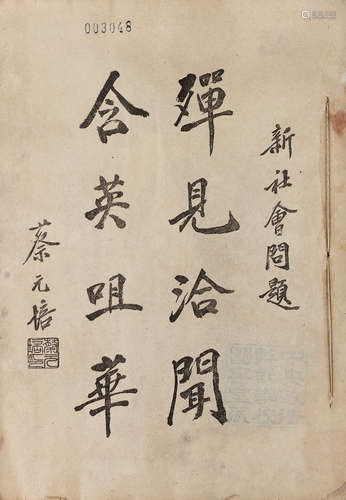 003048
新社會問題
殫見洽聞
含英咀華
蔡元培